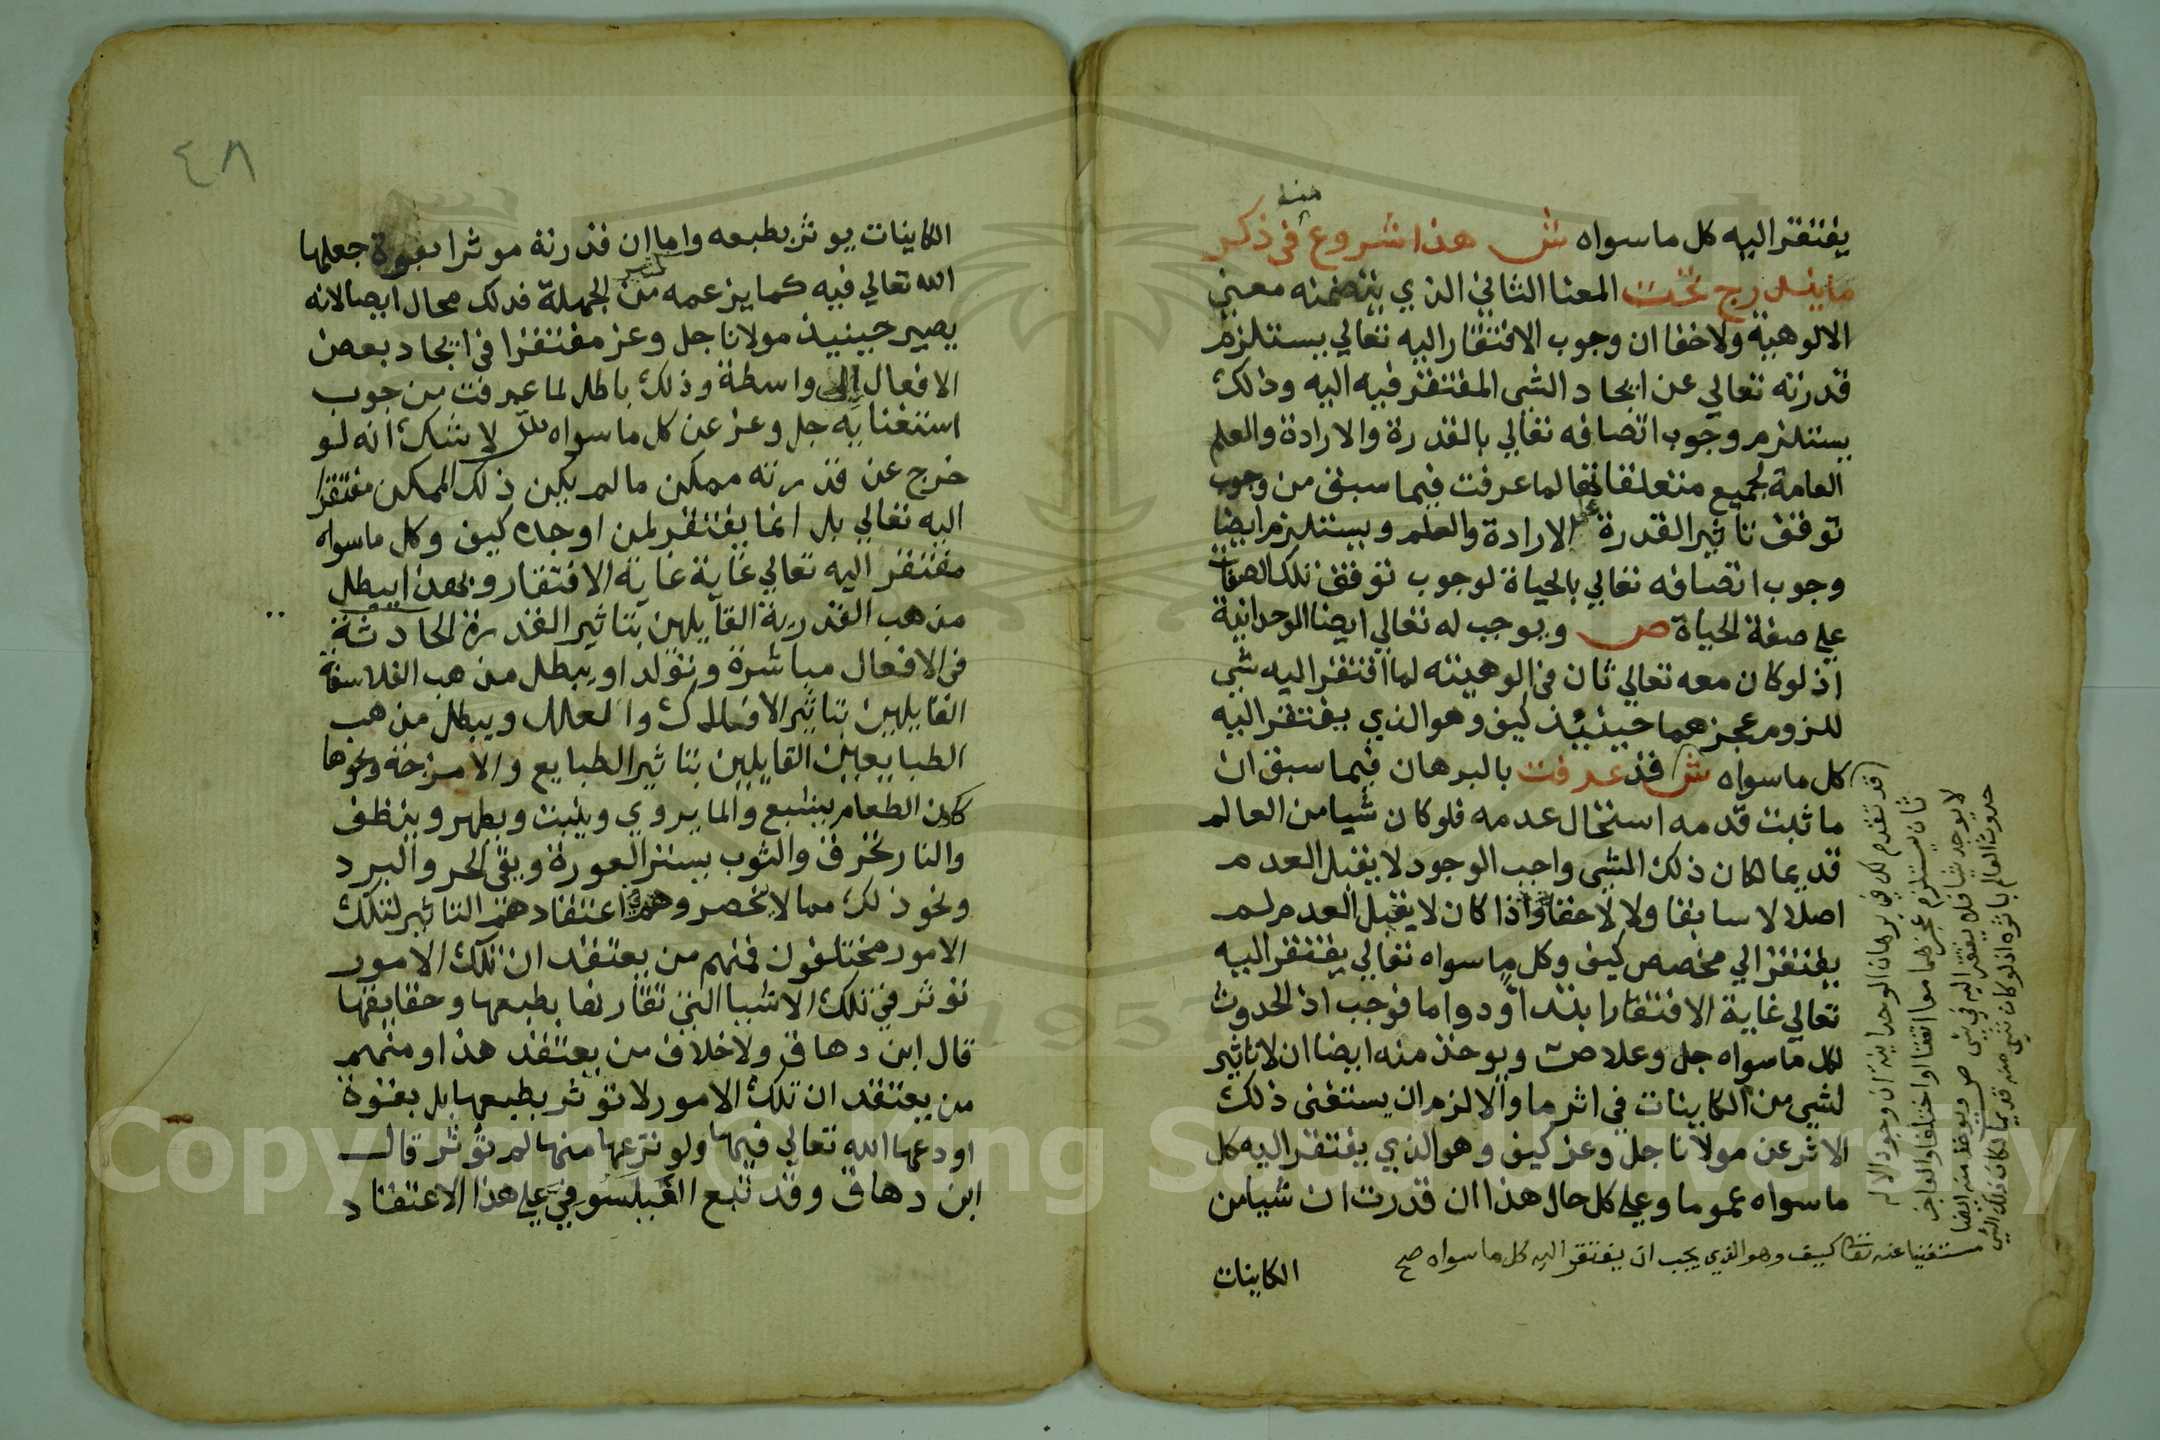 يفتقر اليه كل ما سواه ش هذا شروع منه في ذكر
ما يندرج تحت المعنا الثاني الذي يتضمنه معنى
الالوهية ولا خفا ان وجوب الافتقار اليه تعالي يستلزم
قدرته تعالي عن ايجاد الشي المفتقر فيه اليه وذلك
يستلزم وجوب اتصافه تعالي بالقدرة والارادة والعلم
العامة لجميع متعلقاتها لما عرفت فيما سبق من وجوب
توقف تاثير القدرة على الارادة والعلم ويستلزم ايضا
وجوب اتصافه تعالي بالحياة لوجوب توقف تلك الصفات
علي صفة الحياة ص ويوجب له تعالي ايضا الوحدانية
اذ لو كان معه تعالي ثان في الوهيته لما افتقر اليه شي
للزوم عجزهما حينئيذ كيف وهو الذي يفتقر اليه
كل ما سواه ش قد عرفت بالبرهان فيما سبق ان
ما ثبت قدمه استحال عدمه فلو كان شيا من العالم
قديما لكان ذلك الشي واجب الوجود لا يقبل العدم
اصلا لا سابقا ولا لاحقا واذا كان لا يقبل العدم لم
يفتقر الي مخصص كيف وكل ما سواه تعالي يفتقر اليه
تعالي غاية الافتقار ابتدا ودواما فوجب اذ الحدوث
لكل ما سواه جل وعلا ص ويوخذ منه ايضا ان لا تاثير
لشي من الكاينات في اثر ما والا لزم ان يستغنى ذلك
الاثر عن مولانا جل وعز كيف وهو الذي يفتقر اليه كل
ما سواه عموما وعلي كل حال هذا ان قدرت ان شيا من
الكاينات
قد تقدم لك في برهان الوحدانية ان وجود الاله
ثان يستلزم عجزهما سوا اتفقا او اختلفا والعاجز
لا يوجد شيا فلا يفتقر اليه في شي ص ويوخذ منه ايضا
حدوث العالم باثره اذ لو كان شي منه قديما لكان ذلك الشي
مستغنيا عنه تعالى كيف وهو الذي يجب ان يفتقر اليه كل ما سواه صح
٤٨
الكاينات يوثر بطبعه واما ان قدرته موثرا بقوة جعلها
الله تعالي فيه كما يزعمه كثير من الجهلة فذلك محال ايضا لانه
يصير حينيذ مولانا جل وعز مفتقرا في ايجاد بعض
الافعال الى واسطة وذلك باطل لما عرفت من جوب
استغنايه جل وعز عن كل ما سواه لا شك انه لو
خرج عن قدرته ممكن ما لم يكن ذلك الممكن مفتقرا
اليه تعالي بل انما يفتقر لمن اوجده كيف وكل ما سواه
مفتقر اليه تعالي غاية غاية الافتقار وبهذا يبطل
مذهب القدرية القايلين بتاثير القدرة الحادثة
في الافعال مباشرة وتولدا ويبطل مذهب الفلاسفة
القايلين بتاثير الافلاك والعلل ويبطل مذهب
الطبايعيين القايلين بتاثير الطبايع والامزجة ونحوها
ككون الطعام يشبع والما يروي وينبت ويطهر وينظف
والنار تحرق والثوب يستر العورة ويقي الحر والبرد
ونحو ذلك مما لا ينحصر وهم في اعتقادهم التاثير لتلك
الامور مختلفون فمنهم من يعتقد ان تلك الامور
توثر في تلك الاشيا التي تقارنها بطبعها وحقايقها
قال ابن دهاق ولا خلاف من يعتقد هذا ومنهم
من يعتقد ان تلك الامور لا توثر بطبعها بل بقوة
اودعها الله تعالي فيها ولو نزعها منها لم توثر قال
ابن دهاق وقد تبع الفيلسوفي علي هذا الاعتقاد